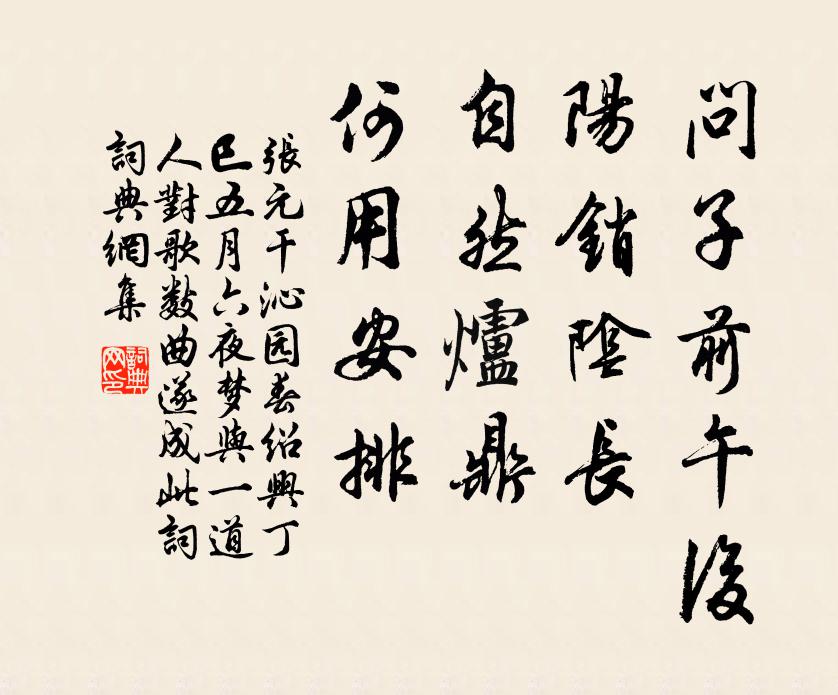 問子前午後
陽銷陰長
自然爐鼎
何用安排
張元干沁园春绍興丁
巳五月六夜梦與一道
人對歌數曲遂成此詞
詞典網集
詞典网印